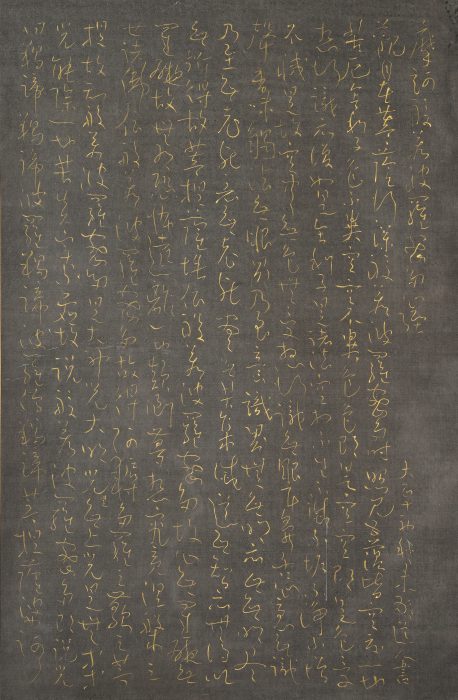 摩訶般若波羅蜜多心經
觀自在菩薩行深般若波羅蜜多時照見五蘊皆空度一切
苦厄舍利子色不異空空不異色色即是空空即是色受
想行識亦復如是舍利子是諸法空相不生不滅不垢不淨不增
不減是故空中無色無受想行識無眼耳鼻舌身意無色
聲香味觸法無眼界乃至無意識界無無明亦無無明盡
乃至無老死亦無老死盡無苦集滅道無智亦無得以
無所得故菩提薩埵依般若波羅蜜多故心無罣礙無
罣礙故無有恐怖遠離一切顛倒夢想究竟涅槃三
世諸佛依般若波羅蜜多故得阿耨多羅三藐三菩
提故知般若波羅蜜多是大神咒是大明咒是無上咒是無等等
咒能除一切苦真實不虛故說般若波羅蜜多咒即說咒
曰揭諦揭諦波羅揭諦波羅僧揭諦菩提薩婆訶